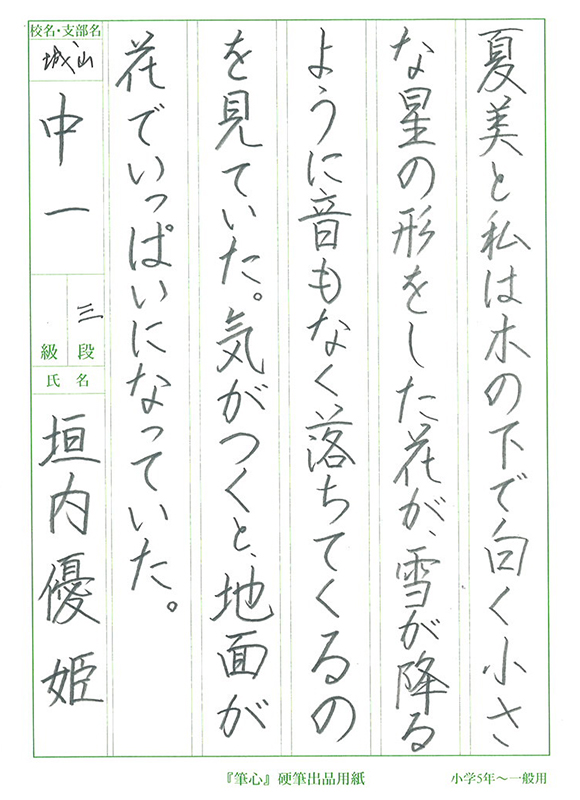 夏美と私は木の下で白く小さ
な星の形をした花が、雪が降る
ように音もなく落ちてくるの
を見ていた。気がつくと、地面が
花でいっぱいになっていた。
校名・支部名
城山
中一
三
級 段
氏名
垣内優姫
『筆心』硬筆出品用紙
小学5年～一般用